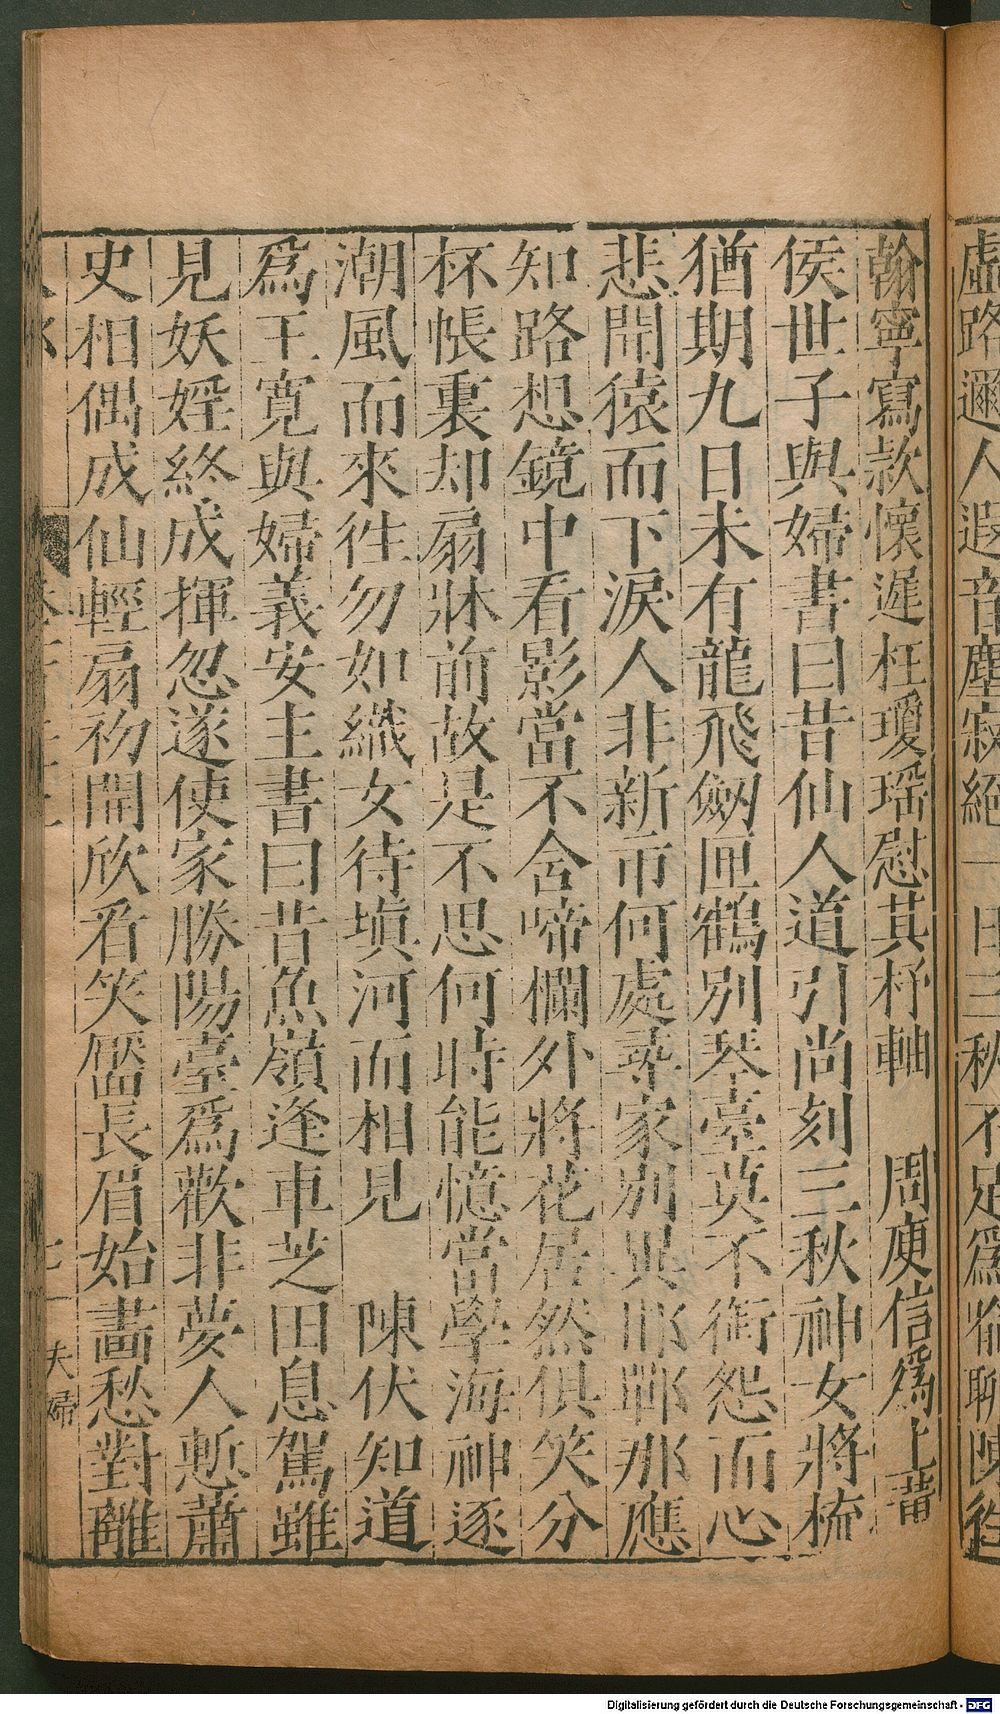 虛路邇人遐音塵寂絕一日三秋不足爲喻聊陳往
翰寧寫款懷遲枉瓊瑶慰其杼軸　周庾信爲上黃
侯世子與婦書曰昔仙人道引尚刻三秋神女將梳
猶期九日未有龍飛劒匣鶴別琴臺莫不銜怨而心
悲聞猿而下淚人非新市何處尋家別異邯鄲那應
知路想鏡中看影當不含啼欄外將花居然俱笑分
杯帳裏却扇牀前故是不思何時能憶當學海神逐
潮風而來徃勿如織女待塡河而相見　陳伏知道
爲王寬與婦義安主書曰昔魚嶺逢車芝田息駕雖
見妖婬終成揮忽遂使家勝陽臺爲歡非夢人慙蕭
史相偶成仙輕扇初開欣看笑靨長眉始畫愁對離
夫婦
Digitalisierung gefördert durch die Deutsche Forschungsgemeinschaft - DFG